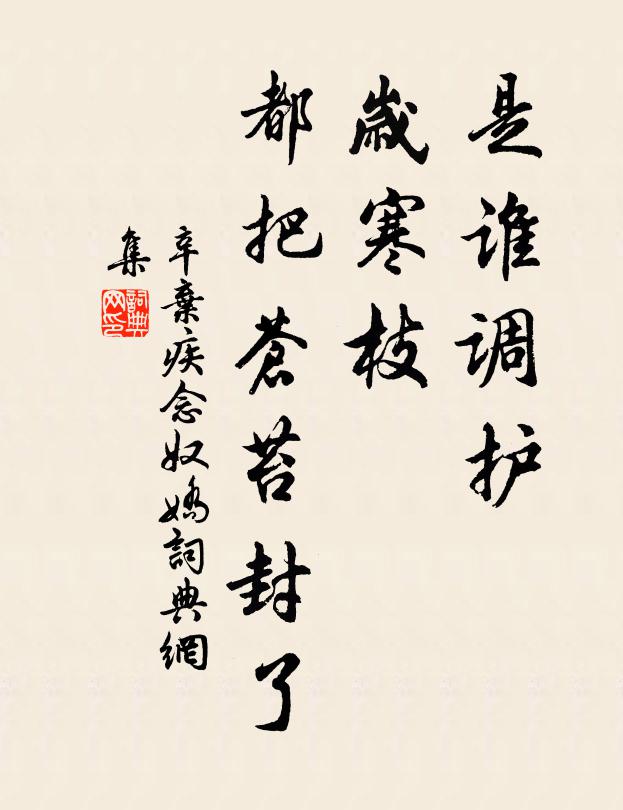 是谁调护
岁寒枝
都把蒼苔封了
辛棄疾念奴嬌詞典網
集
詞典
网印